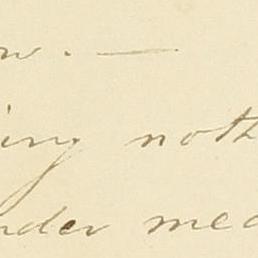 w. —
ing noth
nder mea